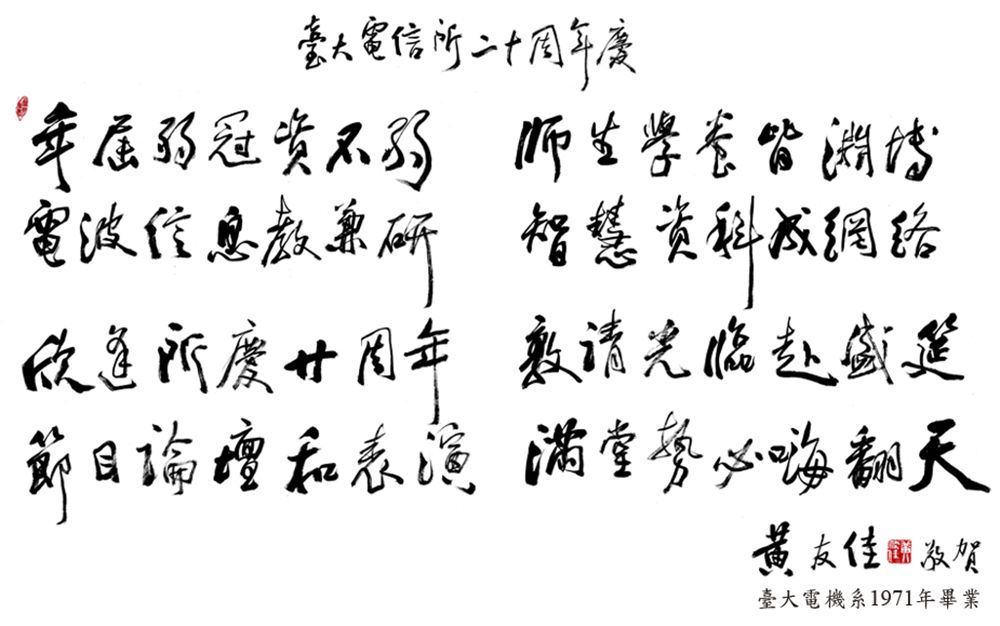 臺大電信所二十周年慶
年屆弱冠資不弱 師生學養皆淵博
電波信息教兼研 智慧資料成網絡
欣逢所慶廿周年 敦請光臨赴盛筵
節目論壇和表演 滿堂勢必嗨翻天
黃友佳 敬賀
臺大電機系1971年畢業